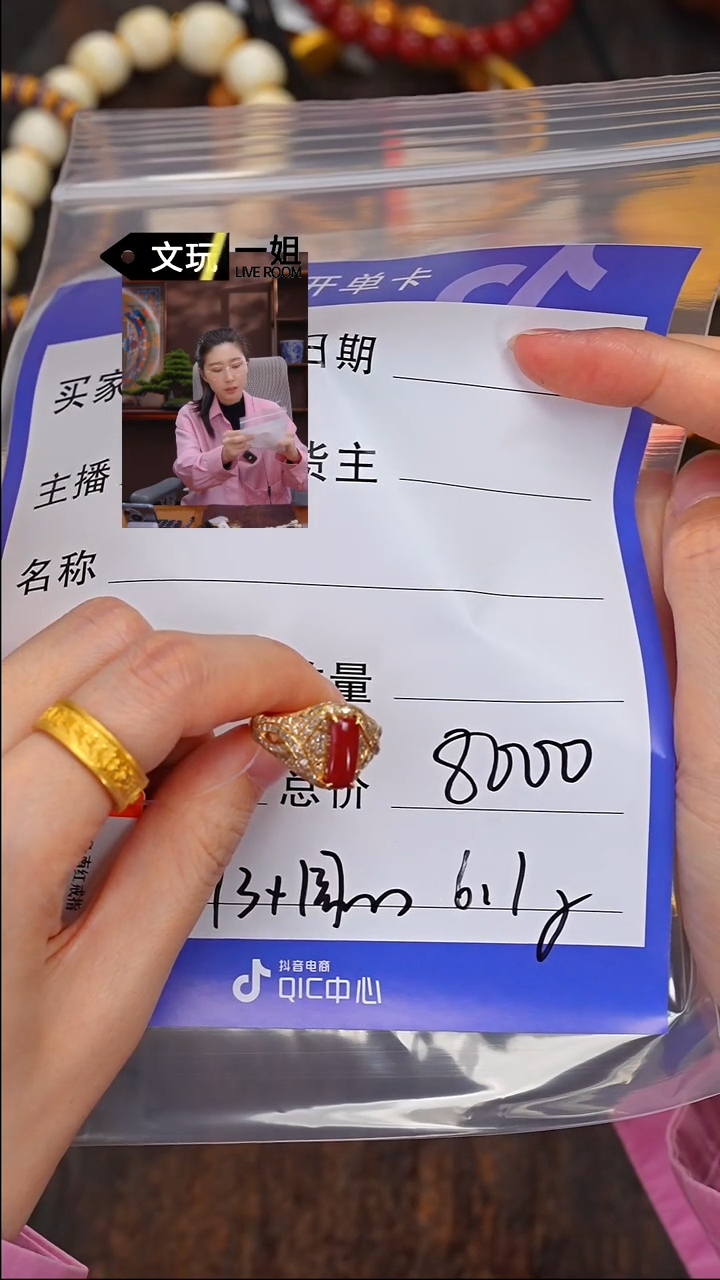 文玩一姐
LIVE ROOM
开单卡
买家 日期
主播 货主
名称
量
总价 8000
6.1g
南红戒指
抖音电商
QIC中心